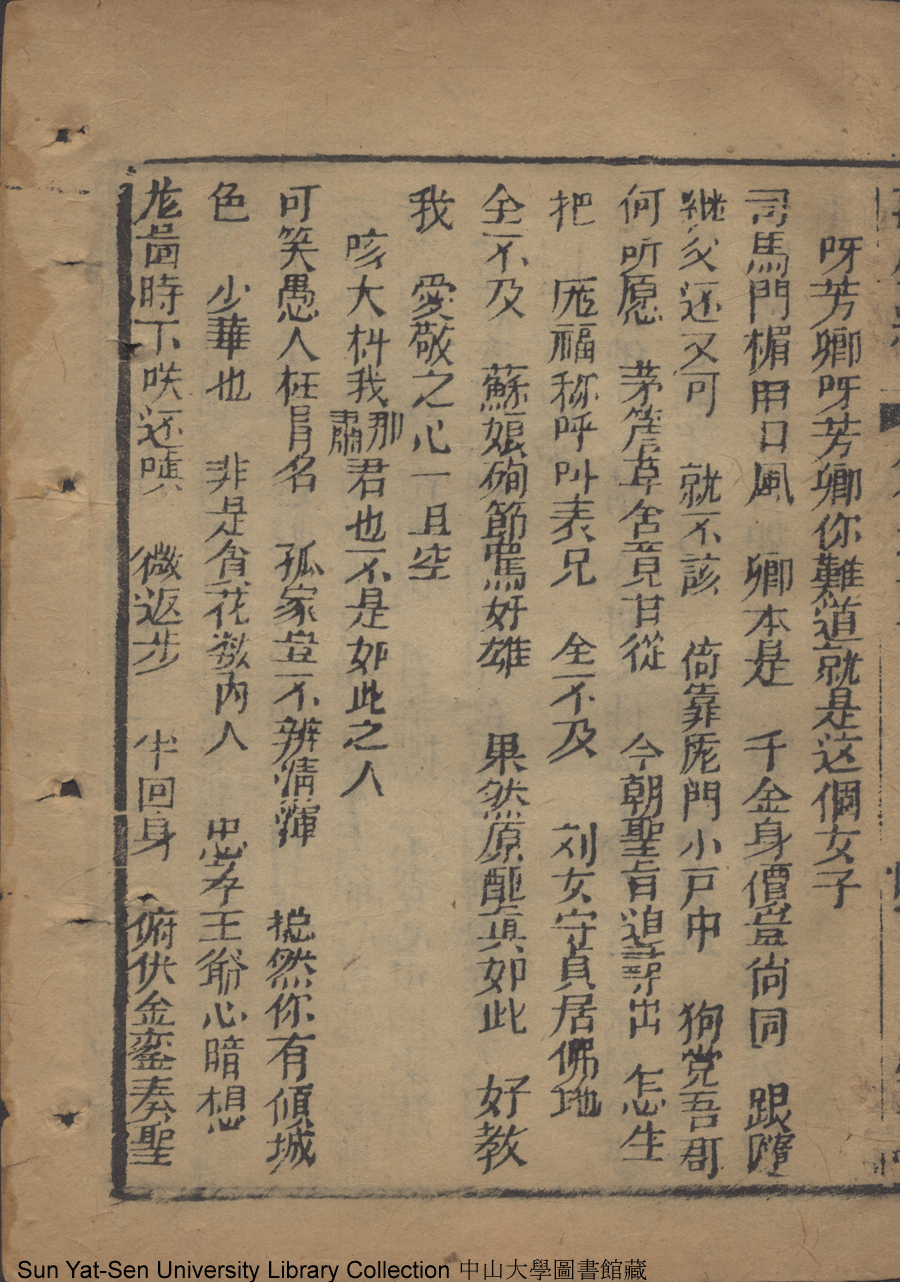 呀芳卿呀芳卿你難道就是这個女子
司馬門楣用口風 卿本是 千金身價豈尙同 跟隨
継父还又可 就不該 倚靠庞門小戶中 狗党吾哥
何所愿 茅簷草舍竟甘從 今朝聖旨追尋出 怎生
把 庞福称呼叫表兄 全不及 刘女守貞居佛地
全不及 蘇娘殉節罵奸雄 果然原配眞如此 好教
我 愛敬之心一旦空
咳大料我那肅君也不是如此之人
可笑愚人枉冒名 孤家豈不辨淸渾 総然你有傾城
色 少華也 非是貪花敗內人 忠孝王爺心暗想
龙 時下咲还嗔 微返步 半回身 俯伏金鑾奏聖
Sun Yat-Sen University Library Collection 中山大學圖書館藏